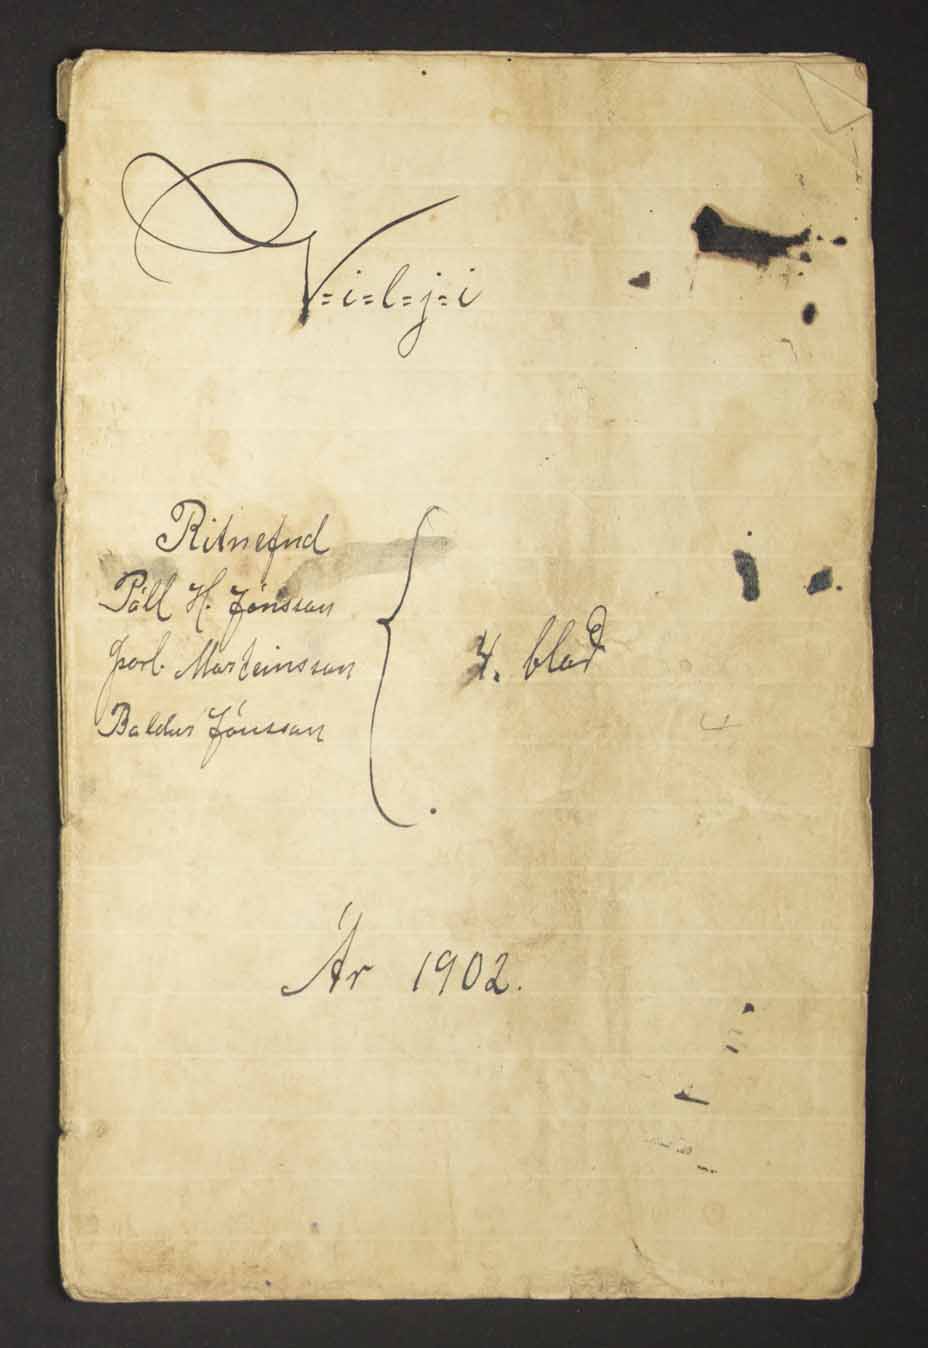 V=i=l=j=i
Ritnefnd
Páll H. Jónsson
Þorl. Marteinsson
Baldur Jónsson
4. blað
Ár 1902.